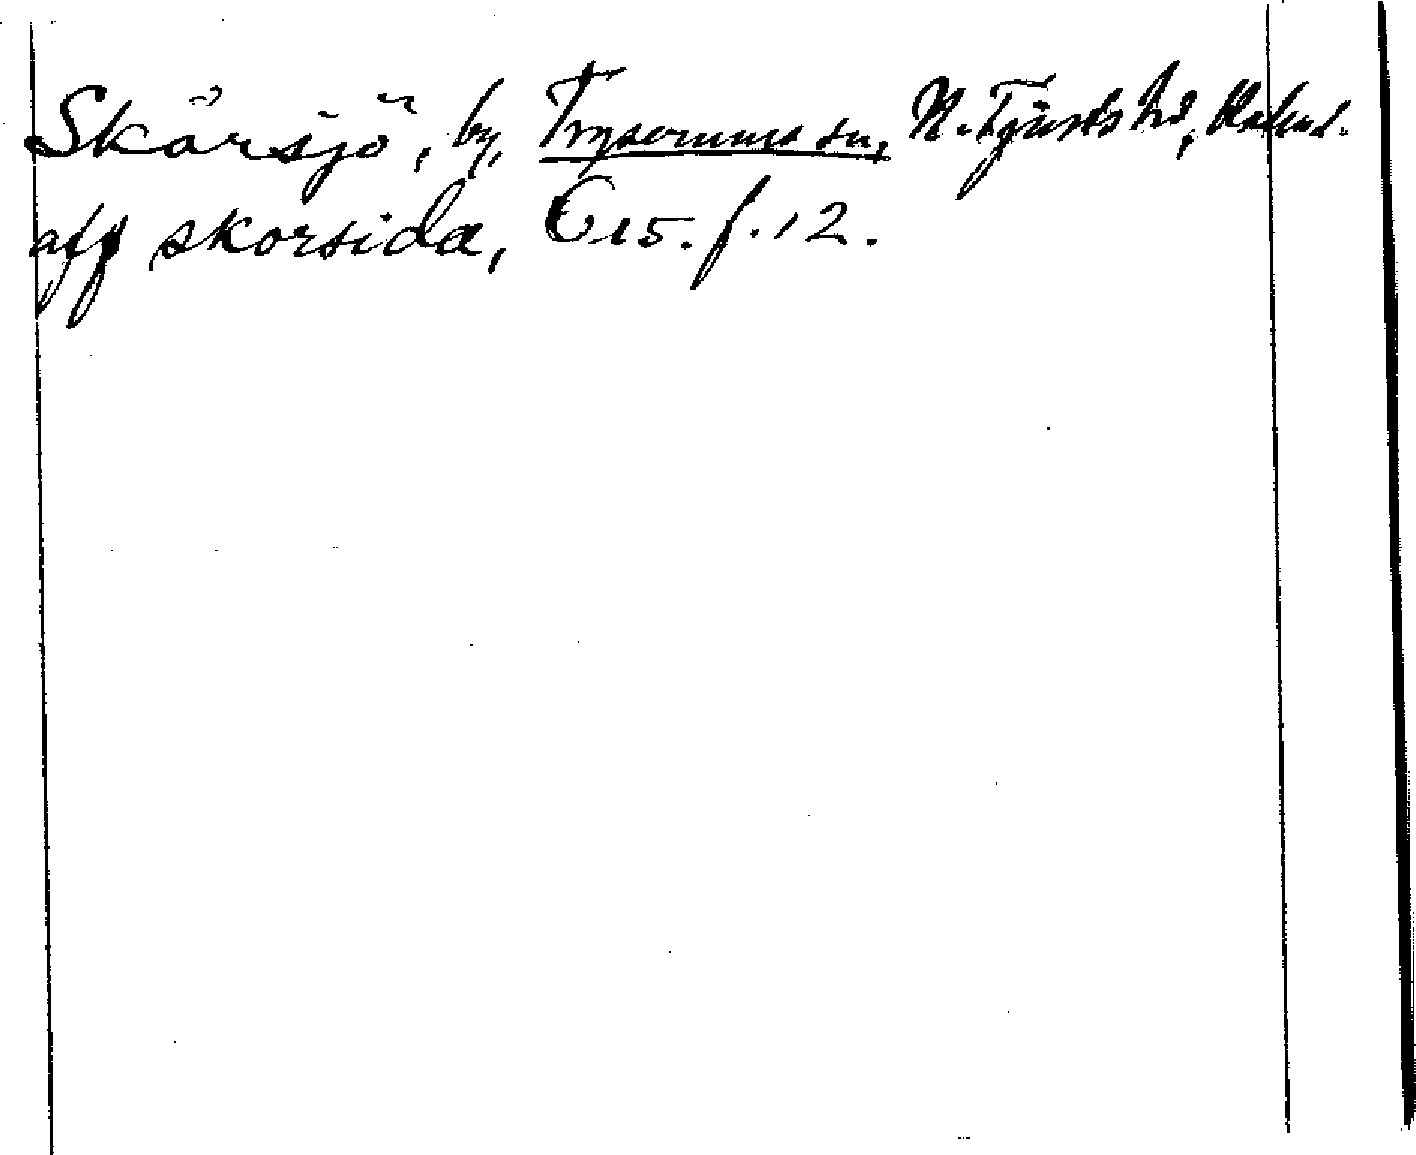 Skårsjö, by, Tryserums sn, N. Tjusts hd, Kalml.
aff skorsida, C 15. f. 12.